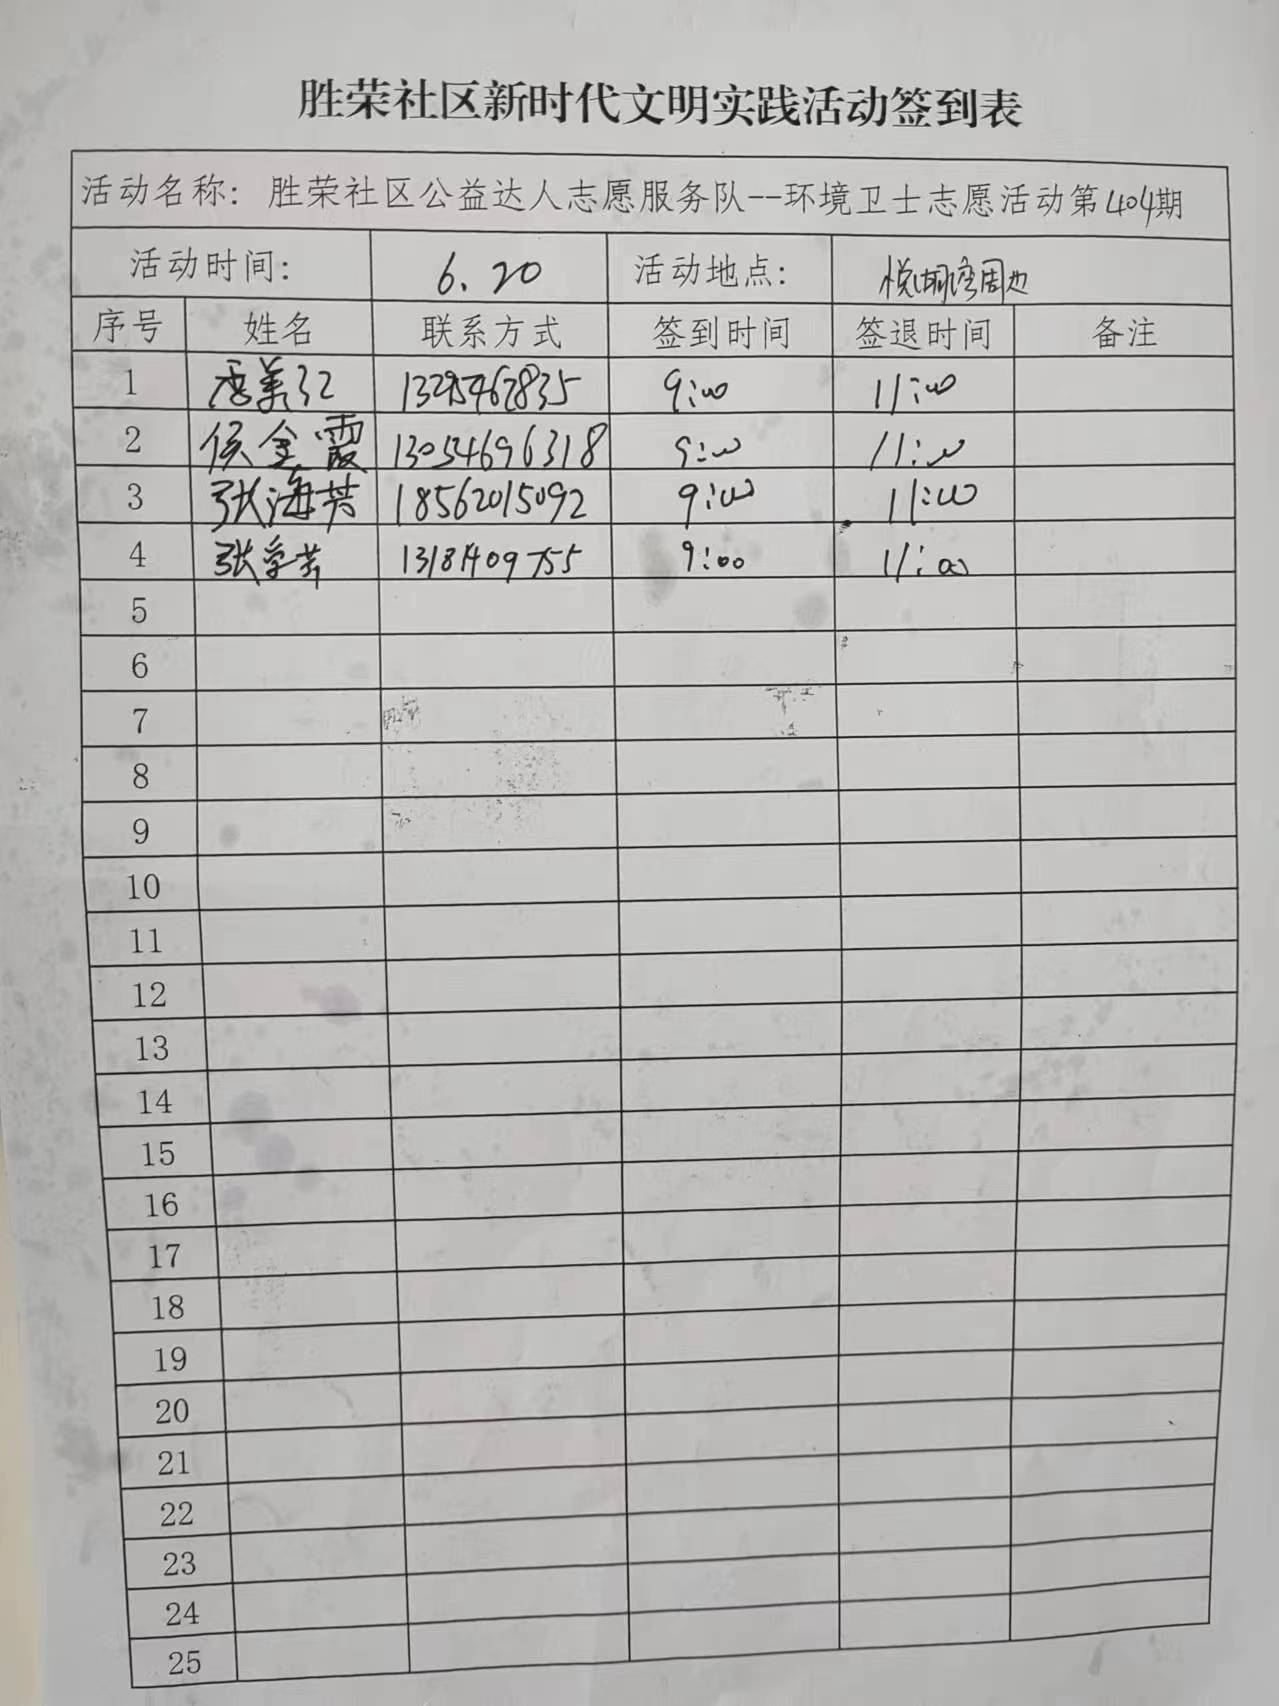 胜荣社区新时代文明实践活动签到表
活动名称：胜荣社区公益达人志愿服务队--环境卫士志愿活动第404期
活动时间： 6.20 活动地点： 悦湖湾周边
序号 姓名 联系方式 签到时间 签退时间 备注
1 美红 13295462835 9:00 11:00
2 侯金霞 13054696318 9:00 11:00
3 张海芳 18562015092 9:00 11:00
4 张 9:00 11:00
5
6
7
8
9
10
11
12
13
14
15
16
17
18
19
20
21
22
23
24
25